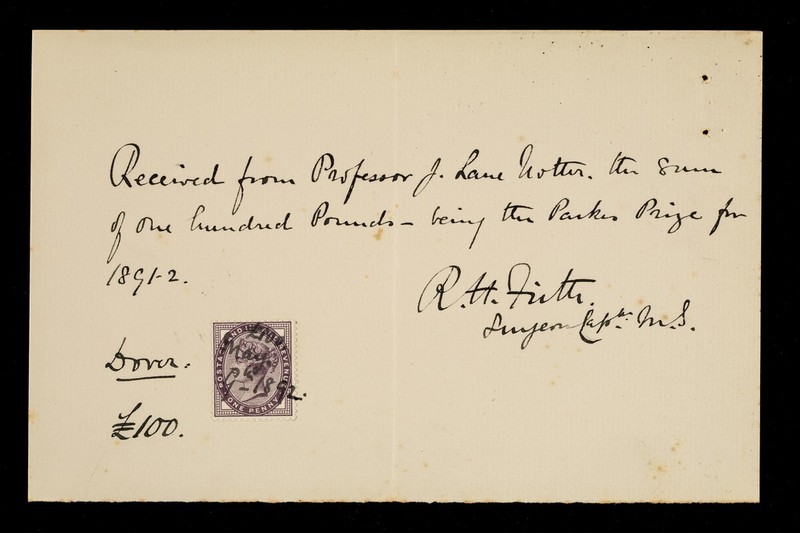 Received from Professor J. Lane Notter. the sum
of one hundred Pounds – being the Parkes Prize for
1891-2.
R. H. Firth.
Surgeon Captn. M.S.
Dover.
£100.
POSTAGE AND INLAND REVENUE
ONE PENNY
1892.